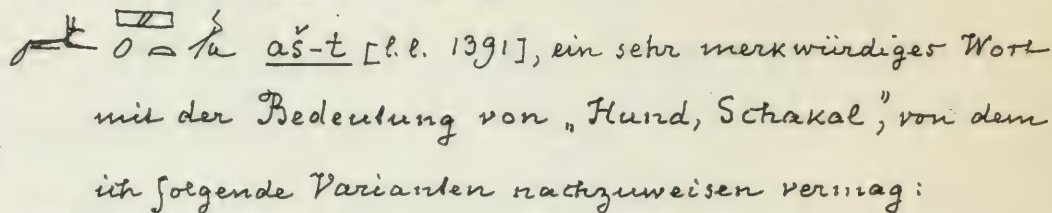 aš-t [l.l. 1391], ein sehr merkwürdiges Wort
mit der Bedeutung von „Hund, Schakal", von dem
ich folgende Varianten nachzuweisen vermag: